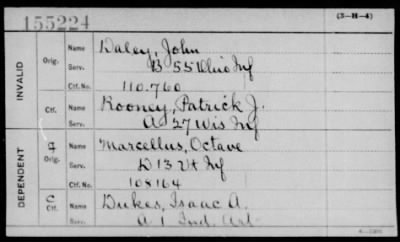 155224
(3-H-4)
INVALID
Orig. Name Daley, John
Serv. B 55 Ohio Inf
Ctf. No. 110.760
Ctf. Name Rooney, Patrick J.
Serv. A 27 Wis Inf
DEPENDENT
Orig. Name Marcellus, Octave
Serv. D 13 Vt Inf
Ctf. No. 108164
C
Ctf. Name Dukes, Isaac A.
Serv. A 1 Ind. Art